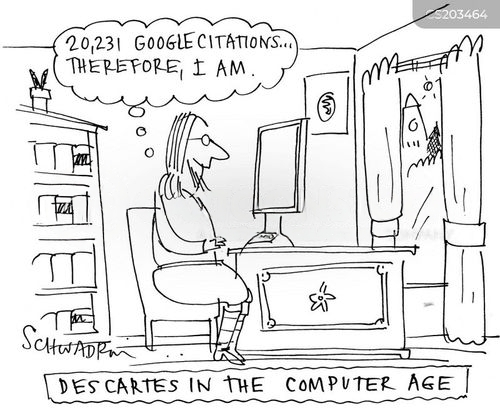 CS203464
20,231 GOOGLE CITATIONS...
THEREFORE, I AM.
SCHWADRON
DESCARTES IN THE COMPUTER AGE